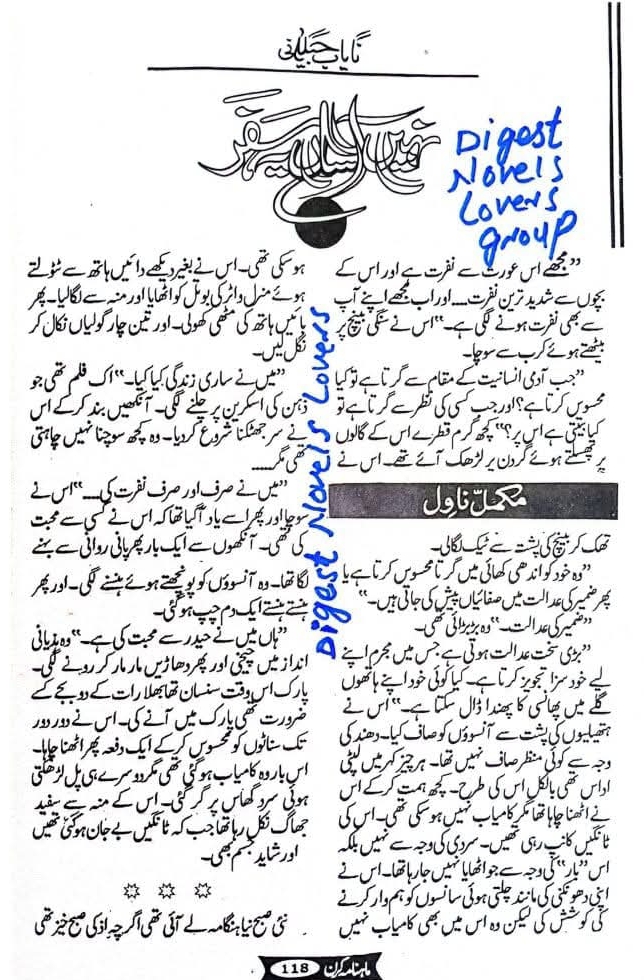 نایاب جیلانی
نہیں آساں یہ سفر
Digest
Novels
Lovers
group
”مجھے اس عورت سے نفرت ہے اور اس کے
بچوں سے شدید ترین نفرت.... اور اب مجھے اپنے آپ
سے بھی نفرت ہونے لگی ہے۔“ اس نے سنگی بینچ پر
بیٹھتے ہوئے کرب سے سوچا۔
”جب آدمی انسانیت کے مقام سے گرتا ہے تو کیا
محسوس کرتا ہے؟ اور جب کسی کی نظر سے گرتا ہے تو
کیا بیتی ہے اس پر؟“ کچھ گرم قطرے اس کے گالوں
پر پھسلتے ہوئے گردن پر لڑھک آئے تھے۔ اس نے
مکمل ناول
تھک کر بینچ کی پشت سے ٹیک لگالی۔
”وہ خود کو اندھی کھائی میں گرتا محسوس کرتا ہے یا
پھر ضمیر کی عدالت میں صفائیاں پیش کی جاتی ہیں۔“
”ضمیر کی عدالت۔“ وہ بڑبڑائی تھی۔
”بڑی سخت عدالت ہوتی ہے جس میں مجرم اپنے
لیے خود سزا تجویز کرتا ہے۔ کیا کوئی خود اپنے ہاتھوں
گلے میں پھانسی کا پھندا ڈال سکتا ہے۔“ اس نے
ہتھیلیوں کی پشت سے آنسوؤں کو صاف کیا۔ دھند کی
وجہ سے کوئی منظر صاف نہیں تھا۔ ہر چیز کہر میں لپٹی
اداس تھی بالکل اس کی طرح۔ کچھ ہمت کرکے اس
نے اٹھنا چاہا تھا مگر کامیاب نہیں ہوسکی تھی۔ اس کی
ٹانگیں کانپ رہی تھیں۔ سردی کی وجہ سے نہیں بلکہ
اس ”بار“ کی وجہ سے جو اٹھایا نہیں جارہا تھا۔ اس نے
اپنی دھونکنی کی مانند چلتی ہوئی سانسوں کو ہموار کرنے
کی کوشش کی لیکن وہ اس میں بھی کامیاب نہیں
ہوسکی تھی۔ اس نے بغیر دیکھے دائیں ہاتھ سے ٹٹولتے
ہوئے منرل واٹر کی بوتل کو اٹھایا اور منہ سے لگالیا۔ پھر
بائیں ہاتھ کی مٹھی کھولی۔ اور تین چار گولیاں نکال کر
نگل لیں۔
”میں نے ساری زندگی کیا کیا۔“ اک فلم تھی جو
ذہن کی اسکرین پر چلنے لگی۔ آنکھیں بند کرکے اس
نے سر جھٹکنا شروع کردیا۔ وہ کچھ سوچنا نہیں چاہتی
تھی مگر....
”میں نے صرف اور صرف نفرت کی....“ اس نے
سوچا اور پھر اسے یاد آگیا تھا کہ اس نے کسی سے محبت
کی تھی۔ آنکھوں سے ایک بار پھر پانی روانی سے بہنے
لگا تھا۔ وہ آنسوؤں کو پونچھتے ہوئے ہنسنے لگی۔ اور پھر
ہنستے ہنستے ایک دم چپ ہوگئی۔
”ہاں میں نے حیدر سے محبت کی ہے۔“ وہ ہذیانی
انداز میں چیخی اور پھر دھاڑیں مار مار کر رونے لگی۔
پارک اس وقت سنسان تھا بھلا رات کے دو بجے کسے
ضرورت تھی پارک میں آنے کی۔ اس نے دور دور
تک سناٹوں کو محسوس کرکے ایک دفعہ پھر اٹھنا چاہا۔
اس بار وہ کامیاب ہوگئی تھی مگر دوسرے ہی پل لڑھکتی
ہوئی سرد گھاس پر گر گئی۔ اس کے منہ سے سفید
جھاگ نکل رہا تھا جب کہ ٹانگیں بے جان ہوگئی تھیں
اور شاید جسم بھی۔
☼ ☼ ☼
نئی صبح نیا ہنگامہ لے آئی تھی اگرچہ اڈکی صبح خیز تھی
Digest Novels Lovers
ماہنامہ کرن 118